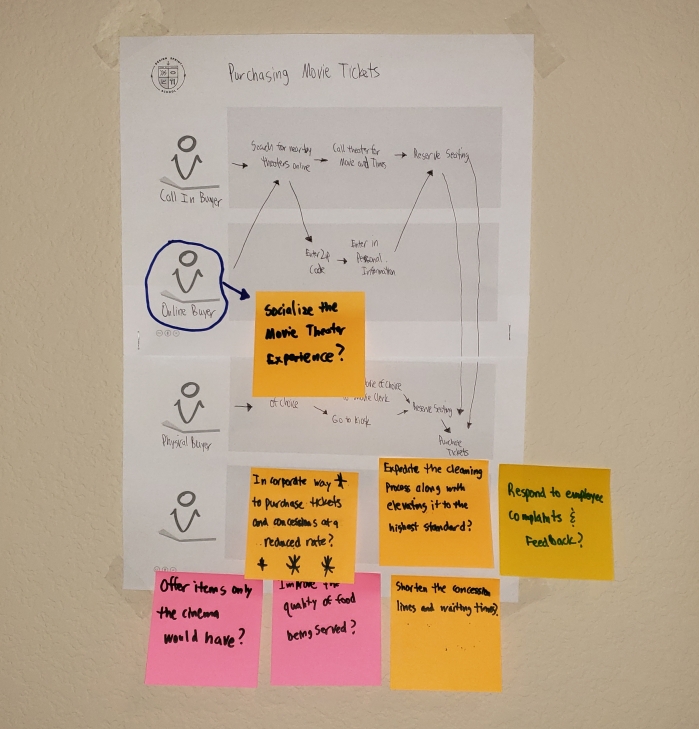 Purchasing Movie Tickets
Search for nearby
theaters online
Call theater for
Movie and Times
Reserve Seating
Call In Buyer
Enter Zip
Code
Enter in
Personal
Information
Online Buyer
Socialize the
Movie Theater
Experience?
of Choice
of Choice
Clerk
Go to Kiosk
Reserve Seating
Purchase
Tickets
Physical Buyer
Incorporate way
to purchase tickets
and concessions at a
reduced rate?
Expedite the cleaning
Process along with
elevating it to the
highest standard?
Respond to employee
complaints &
Feedback?
Offer items only
the cinema
would have?
Improve the
quality of food
being served?
Shorten the concession
lines and waiting times?